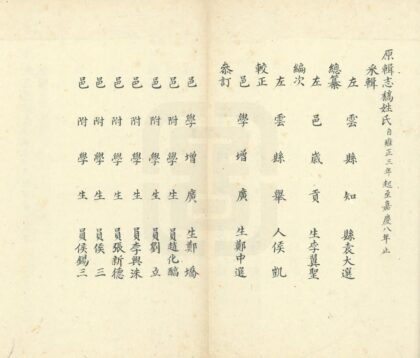 原輯志稿姓氏自雍正三年起至嘉慶八年止
采輯
左雲縣知縣袁大選
總纂
左邑歲貢生李翼聖
編次
左雲縣舉人侯凱
較正
邑學增廣生鄭中選
叅訂
邑學增廣生鄭墧
邑附學生員趙化
邑附學生員劉立
邑附學生員李興洙
邑附學生員張新德
邑附學生員侯三
邑附學生員侯錫三